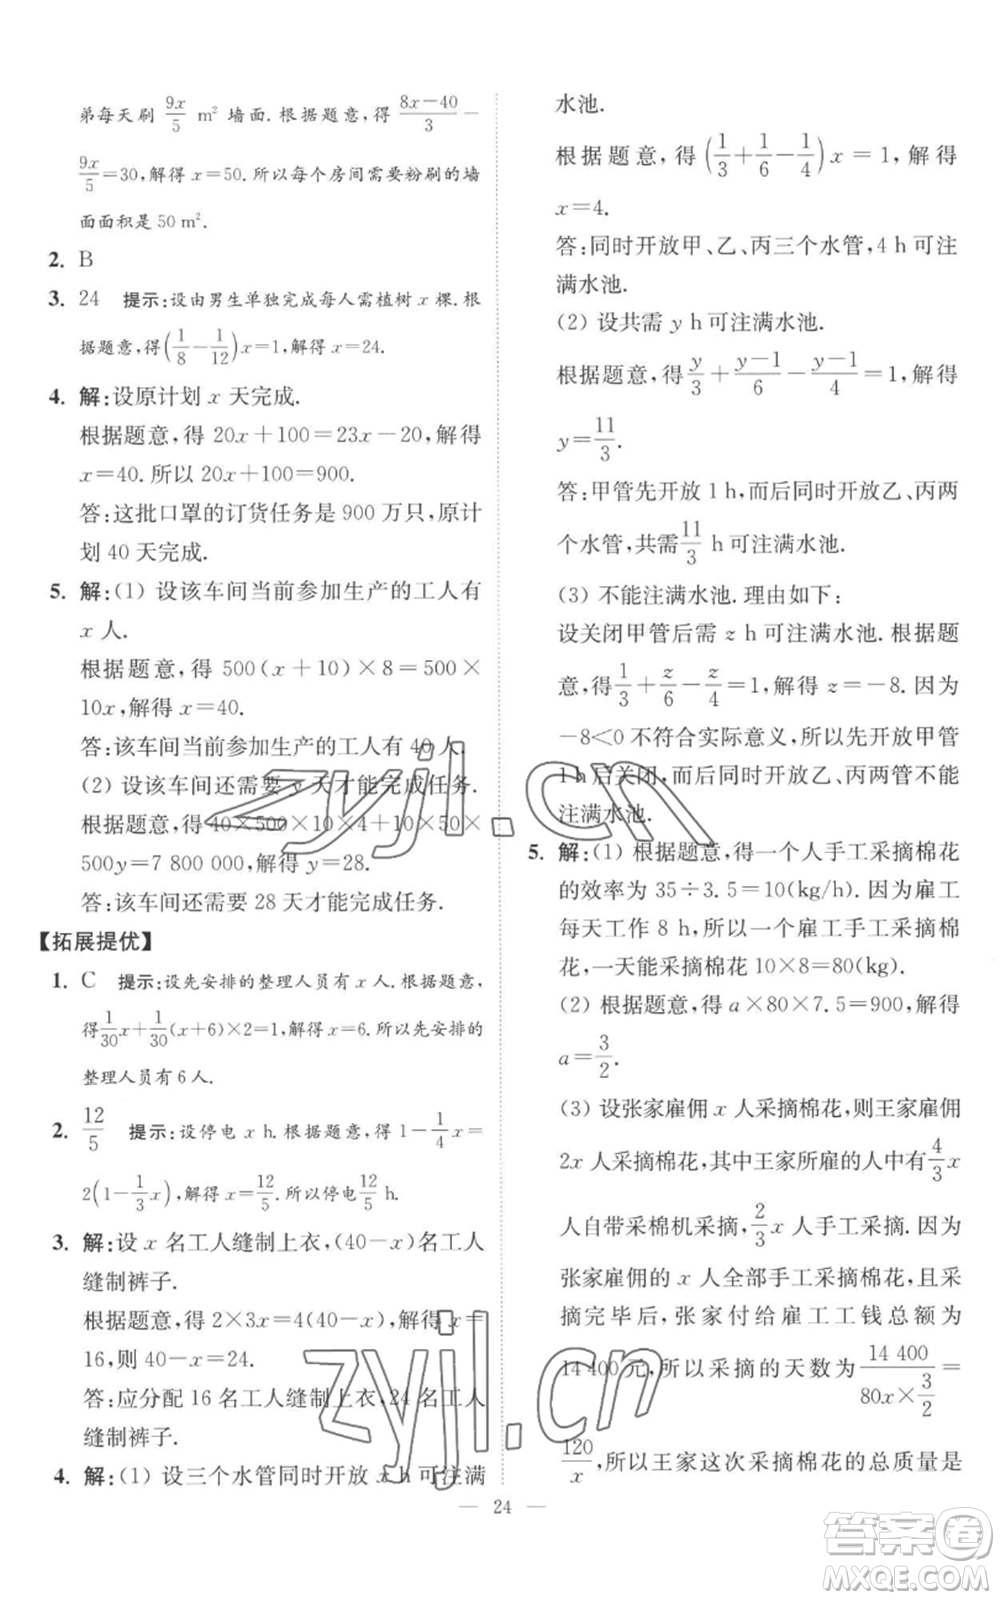 弟每天刷 9x/5 m² 墙面. 根据题意, 得 (8x-40)/3 -
9x/5=30, 解得 x=50. 所以每个房间需要粉刷的墙
面面积是 50 m².
2. B
3. 24 提示:设由男生单独完成每人需植树 x 棵. 根
据题意, 得(1/8-1/12)x=1, 解得 x=24.
4. 解:设原计划 x 天完成.
根据题意, 得 20x+100=23x-20, 解得
x=40. 所以 20x+100=900.
答:这批口罩的订货任务是 900 万只, 原计
划 40 天完成.
5. 解:(1) 设该车间当前参加生产的工人有
x 人.
根据题意, 得 500(x+10)×8=500×
10x, 解得 x=40.
答:该车间当前参加生产的工人有 40 人.
(2) 设该车间还需要 y 天才能完成任务.
根据题意, 得 40×500×10×4+10×50×
500y=7 800 000, 解得 y=28.
答:该车间还需要 28 天才能完成任务.
【拓展提优】
1. C 提示:设先安排的整理人员有 x 人. 根据题意,
得1/30x+1/30(x+6)×2=1, 解得 x=6. 所以先安排的
整理人员有 6 人.
2. 12/5 提示:设停电 x h. 根据题意, 得 1-1/4x=
2(1-1/3x), 解得 x=12/5. 所以停电12/5 h.
3. 解:设 x 名工人缝制上衣, (40-x)名工人
缝制裤子.
根据题意, 得 2×3x=4(40-x), 解得 x=
16, 则 40-x=24.
答:应分配 16 名工人缝制上衣, 24 名工人
缝制裤子.
4. 解:(1) 设三个水管同时开放 x h 可注满
水池.
根据题意, 得(1/3+1/6-1/4)x=1, 解得
x=4.
答:同时开放甲、乙、丙三个水管, 4 h 可注
满水池.
(2) 设共需 y h 可注满水池.
根据题意, 得y/3+(y-1)/6-(y-1)/4=1, 解得
y=11/3.
答:甲管先开放 1 h, 而后同时开放乙、丙两
个水管, 共需11/3 h 可注满水池.
(3) 不能注满水池. 理由如下:
设关闭甲管后需 z h 可注满水池. 根据题
意, 得1/3+z/6-z/4=1, 解得 z=-8. 因为
-8<0 不符合实际意义, 所以先开放甲管
1 h 后关闭, 而后同时开放乙、丙两管不能
注满水池.
5. 解:(1) 根据题意, 得一个人手工采摘棉花
的效率为 35÷3.5=10(kg/h). 因为雇工
每天工作 8 h, 所以一个雇工手工采摘棉
花, 一天能采摘棉花 10×8=80(kg).
(2) 根据题意, 得 a×80×7.5=900, 解得
a=3/2.
(3) 设张家雇佣 x 人采摘棉花, 则王家雇佣
2x 人采摘棉花, 其中王家所雇的人中有4/3x
人自带采棉机采摘, 2/3x 人手工采摘. 因为
张家雇佣的 x 人全部手工采摘棉花, 且采
摘完毕后, 张家付给雇工工钱总额为
14 400元, 所以采摘的天数为 14 400/(80x×3/2)=
120/x, 所以王家这次采摘棉花的总质量是
— 24 —
zyjl.cn
zyjl.cn
答案卷
MXQE.COM